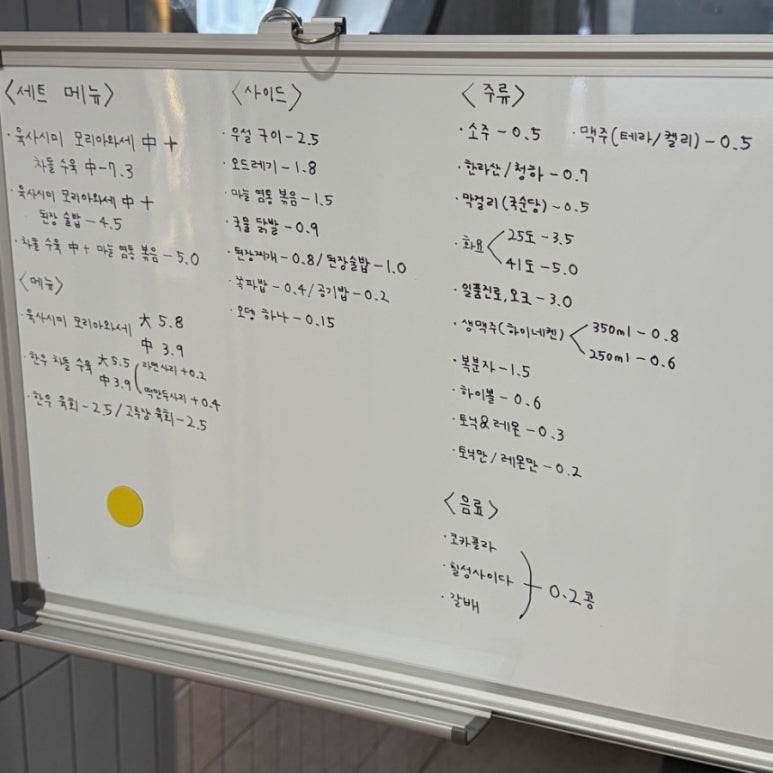 <세트 메뉴>
· 육사시미 모리아와세 中 +
차돌 수육 中 - 7.3
· 육사시미 모리아와세 中 +
된장 술밥 - 4.5
· 차돌 수육 中 + 마늘 염통 볶음 - 5.0
<메뉴>
· 육사시미 모리아와세 大 5.8
中 3.9
· 한우 차돌 수육 大 5.5
中 3.9
라면사리 +0.2
떡만두사리 +0.4
· 한우 육회 - 2.5 / 고추장 육회 - 2.5
<사이드>
· 우설 구이 - 2.5
· 오드레기 - 1.8
· 마늘 염통 볶음 - 1.5
· 국물 닭발 - 0.9
· 된장찌개 - 0.8 / 된장술밥 - 1.0
· 쪽파밥 - 0.4 / 공기밥 - 0.2
· 오뎅 하나 - 0.15
<주류>
· 소주 - 0.5 · 맥주(테라/켈리) - 0.5
· 한라산/청하 - 0.7
· 막걸리(국순당) - 0.5
· 화요 < 25도 - 3.5
41도 - 5.0
· 일품진로, 오크 - 3.0
· 생맥주(하이네켄) < 350ml - 0.8
250ml - 0.6
· 복분자 - 1.5
· 하이볼 - 0.6
· 토닉&레몬 - 0.3
· 토닉만/레몬만 - 0.2
<음료>
· 코카콜라
· 칠성사이다
· 갈배
0.2콩